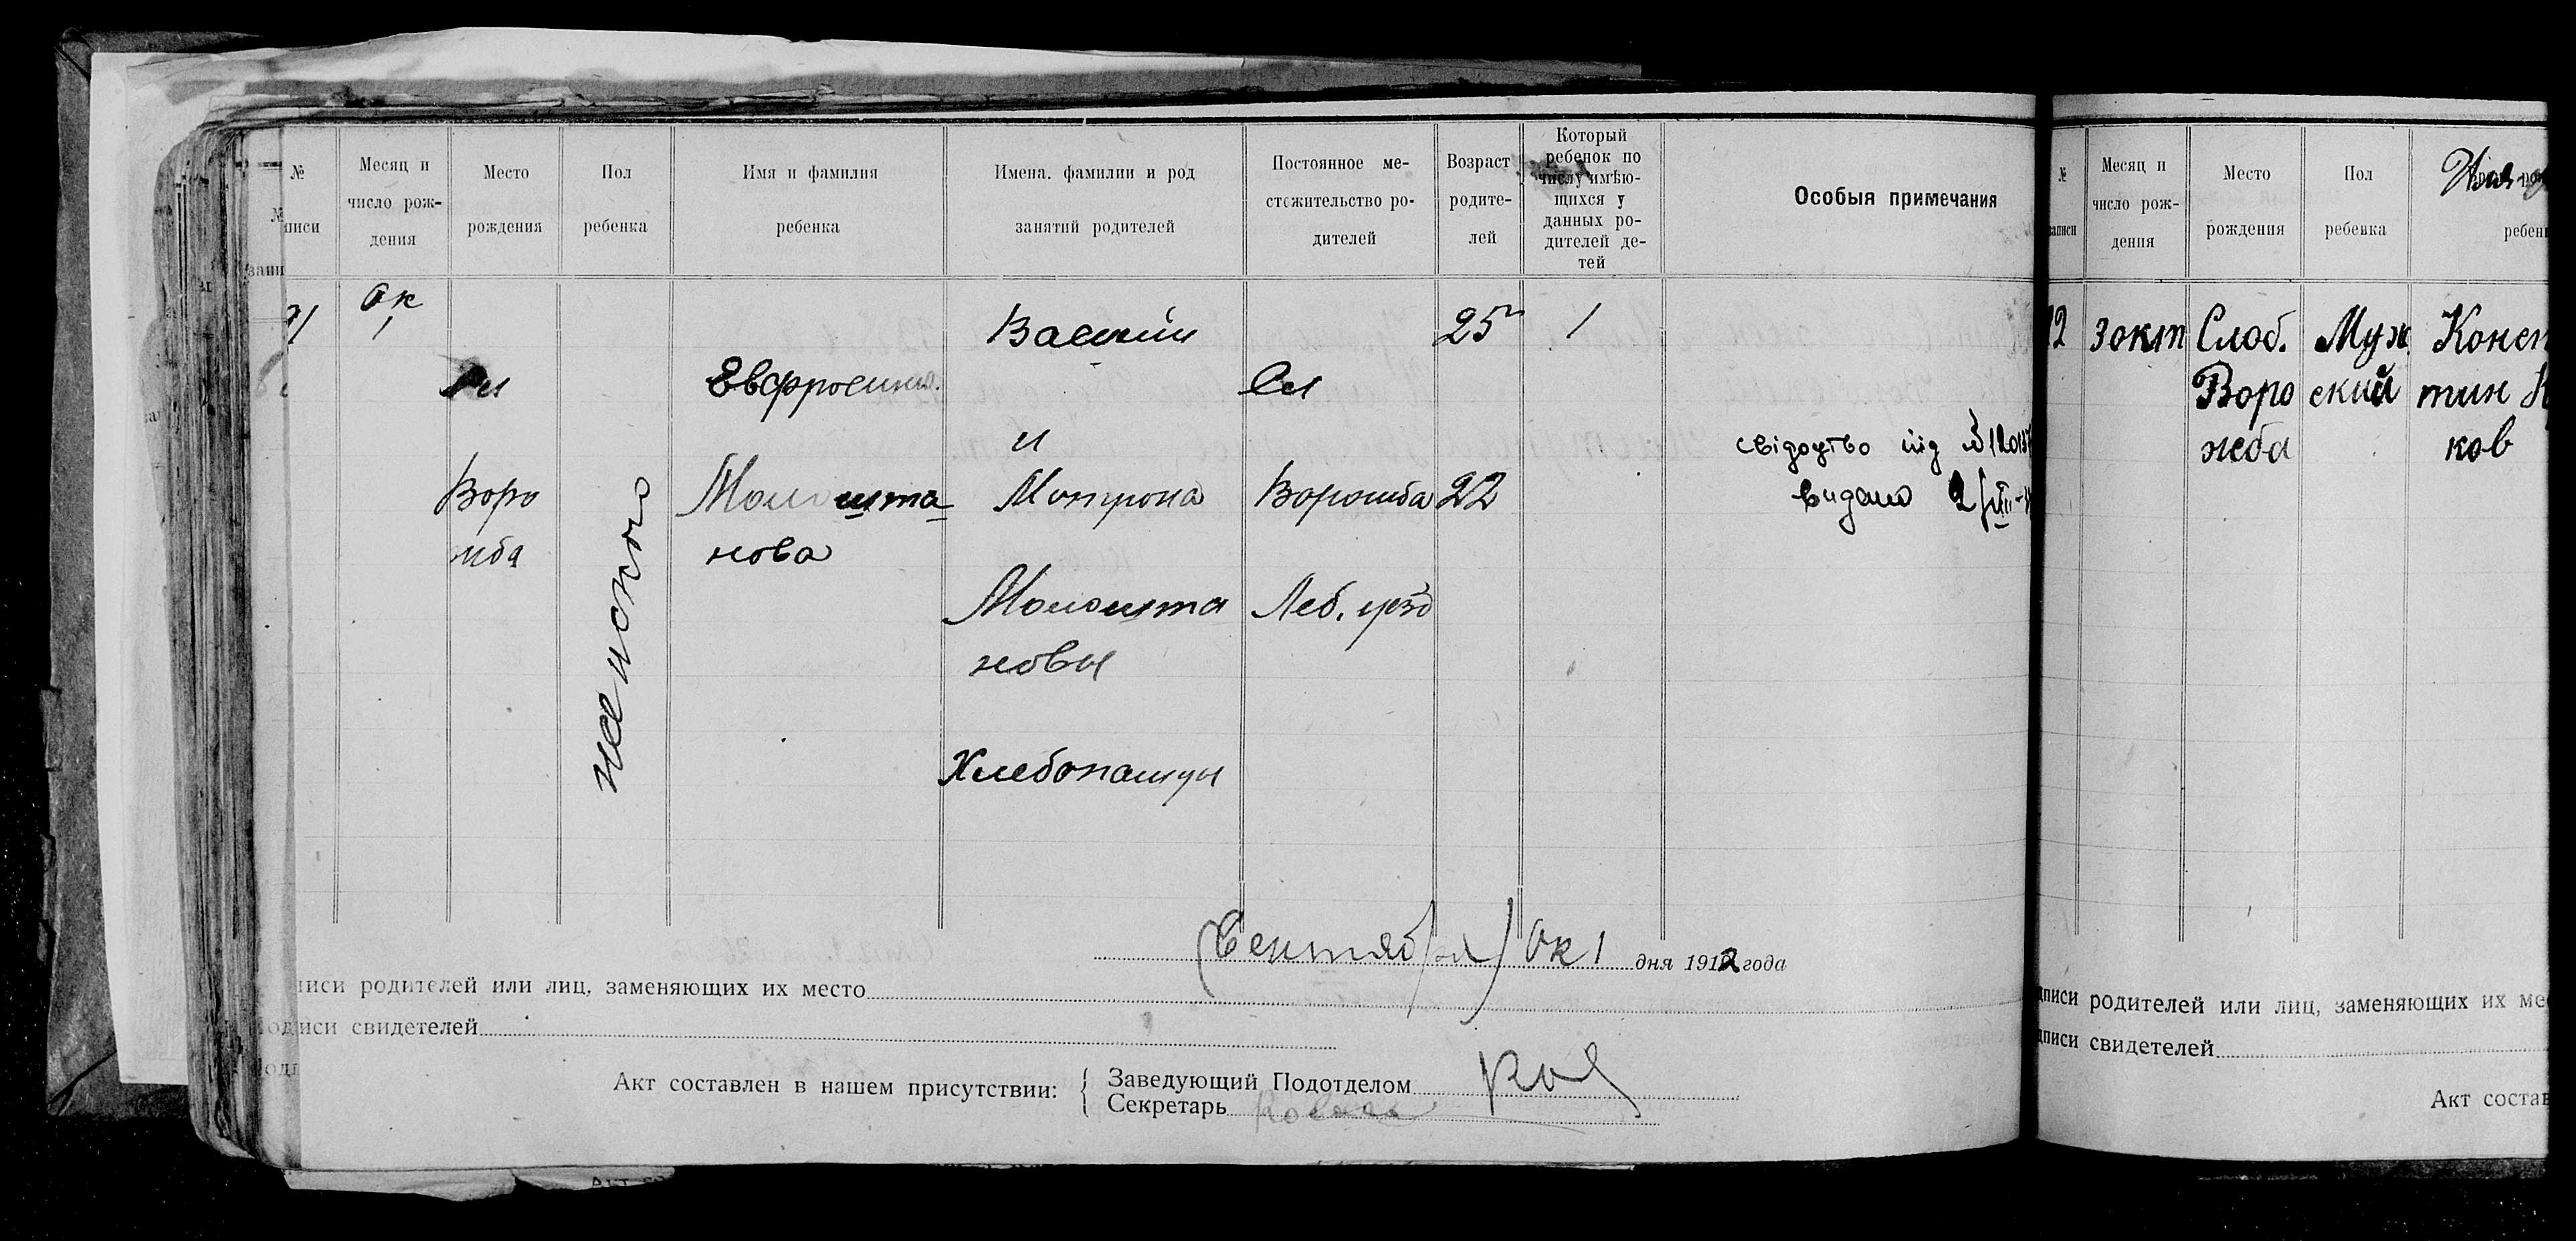 №
иси
Месяц и
число рож-
дения
Место
рождения
Пол
ребенка
Имя и фамилия
ребенка
Имена, фамилии и род
занятий родителей
Постоянное ме-
стожительство ро-
дителей
Возраст
родите-
лей
Который
ребенок по
числу имѣю-
щихся у
данных ро-
дителей де-
тей
Особыя примечания
Ок
1
Воро
жба
женского
Евфросиния
нова
Василий
и
Мотрона
новы
Хлебопашцы
Сл
Ворожба
Леб. уезд
25
22
1
свідоцтво під №
видано
(Сентября) Ок 1 дня 1912 года
иси родителей или лиц, заменяющих их место
одписи свидетелей
Акт составлен в нашем присутствии:
Заведующий Подотделом
Секретарь
№
записи
Месяц и
число рож-
дения
Место
рождения
Пол
ребенка
ребен
2
3 окт
Слоб.
Воро
жба
Муж
ский
Конст
тин К
ков
дписи родителей или лиц, заменяющих их ме
дписи свидетелей
Акт состав